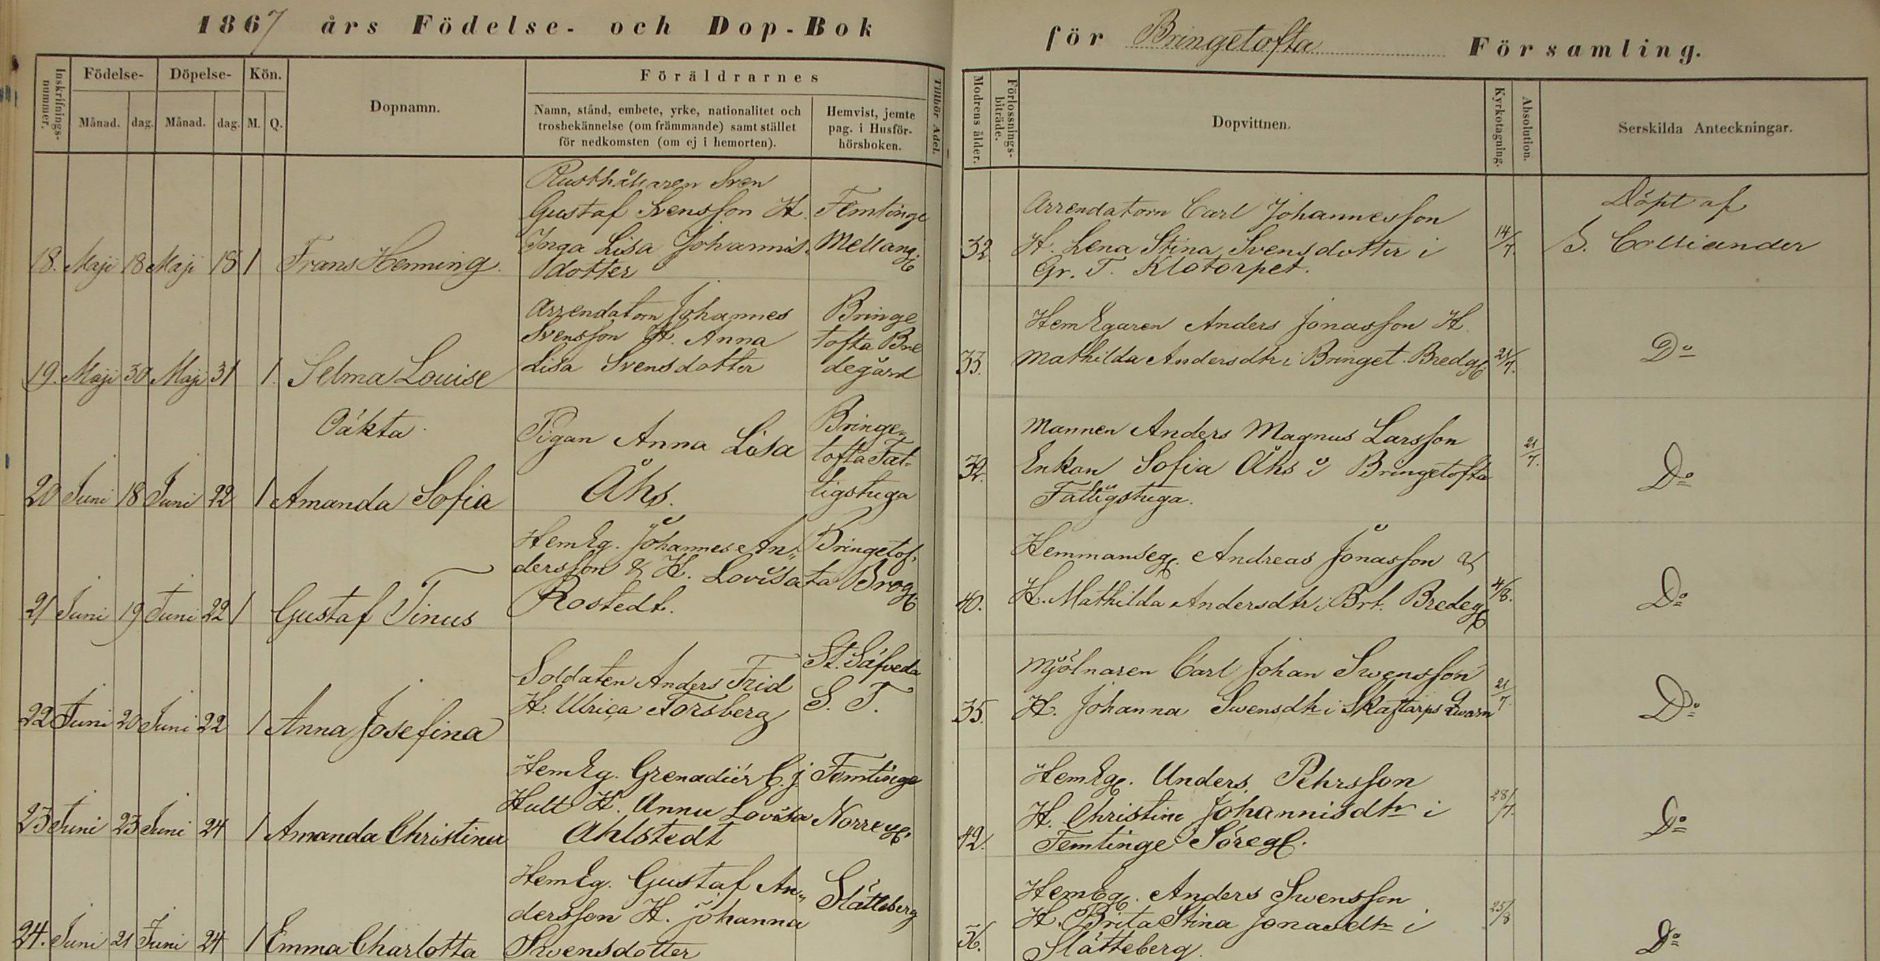 1867 års Födelse- och Dop-Bok
för Bringetofta Församling.
Inskrifnings-nummer.
Födelse-
Månad.
dag.
Döpelse-
Månad.
dag.
Kön.
M.
Q.
Dopnamn.
Föräldrarnes
Namn, stånd, embete, yrke, nationalitet och
trosbekännelse (om främmande) samt stället
för nedkomsten (om ej i hemorten).
Hemvist, jemte
pag. i Husför-
hörsboken.
Tillhör Adel.
Modrens ålder.
Förlossnings-
biträde.
Dopvittnen.
Kyrkotagning.
Absolution.
Serskilda Anteckningar.
18. Maji 18 Maji 18 1 Frans Henning.
Rusthållaren Sven
Gustaf Svensson H.
Inga Lisa Johannis
dotter
Femtinge
Mellang
32
Arrendatorn Carl Johannesson
H. Lena Stina Svensdotter i
Gr. T. Klotorpet.
14/7.
Döpt af
S. Colliander
19. Maji 30 Maji 31 1. Selma Louise
Arrendatorn Johannes
Svensson H. Anna
Lisa Svensdotter
Bringe
tofta Bre
degård
33.
HemEgaren Anders Jonasson H.
Mathilda Andersdtr i Bringet. Bredeg
21/7.
Do
Oäkta
20 Juni 18 Juni 22 1 Amanda Sofia
Pigan Anna Lisa
Åhs.
Bringe-
tofta Fat-
tigstuga
32.
Mannen Anders Magnus Larsson
Enkan Sofia Åhs i Bringetofta
Fattigstuga.
21/7.
Do
21 Juni 19 Juni 22 1 Gustaf Linus
HemEg. Johannes An-
dersson & H. Lovisa
Rostedt.
Bringetof-
ta Brog
40.
Hemmanseg. Andreas Jonasson &
H. Mathilda Andersdtr i Brt. Bredeg
4/8.
Do
22 Juni 20 Juni 22 1 Anna Josefina
Soldaten Anders Frid
H. Ulrica Forsberg
St. Säfveda
S. T.
35.
Mjölnaren Carl Johan Swensson
H. Johanna Swensdtr i Skaftarps Qvarn
21/7
Do
23 Juni 23 Juni 24 1 Amanda Christina
HemEg. Grenadier C. J
Hult H. Anna Lovisa
Ahlstedt
Femtinge
Norreg.
42.
HemEg. Anders Pehrsson
H. Christine Johannisdtr i
Femtinge Söreg.
28/7.
Do
24. Juni 21 Juni 24 1 Emma Charlotta
HemEg. Gustaf An-
dersson H. Johanna
Swensdotter
Slätteberg
36.
HemEg. Anders Swensson
H. Brita Stina Jonasdtr i
Slätteberg.
25/8
Do